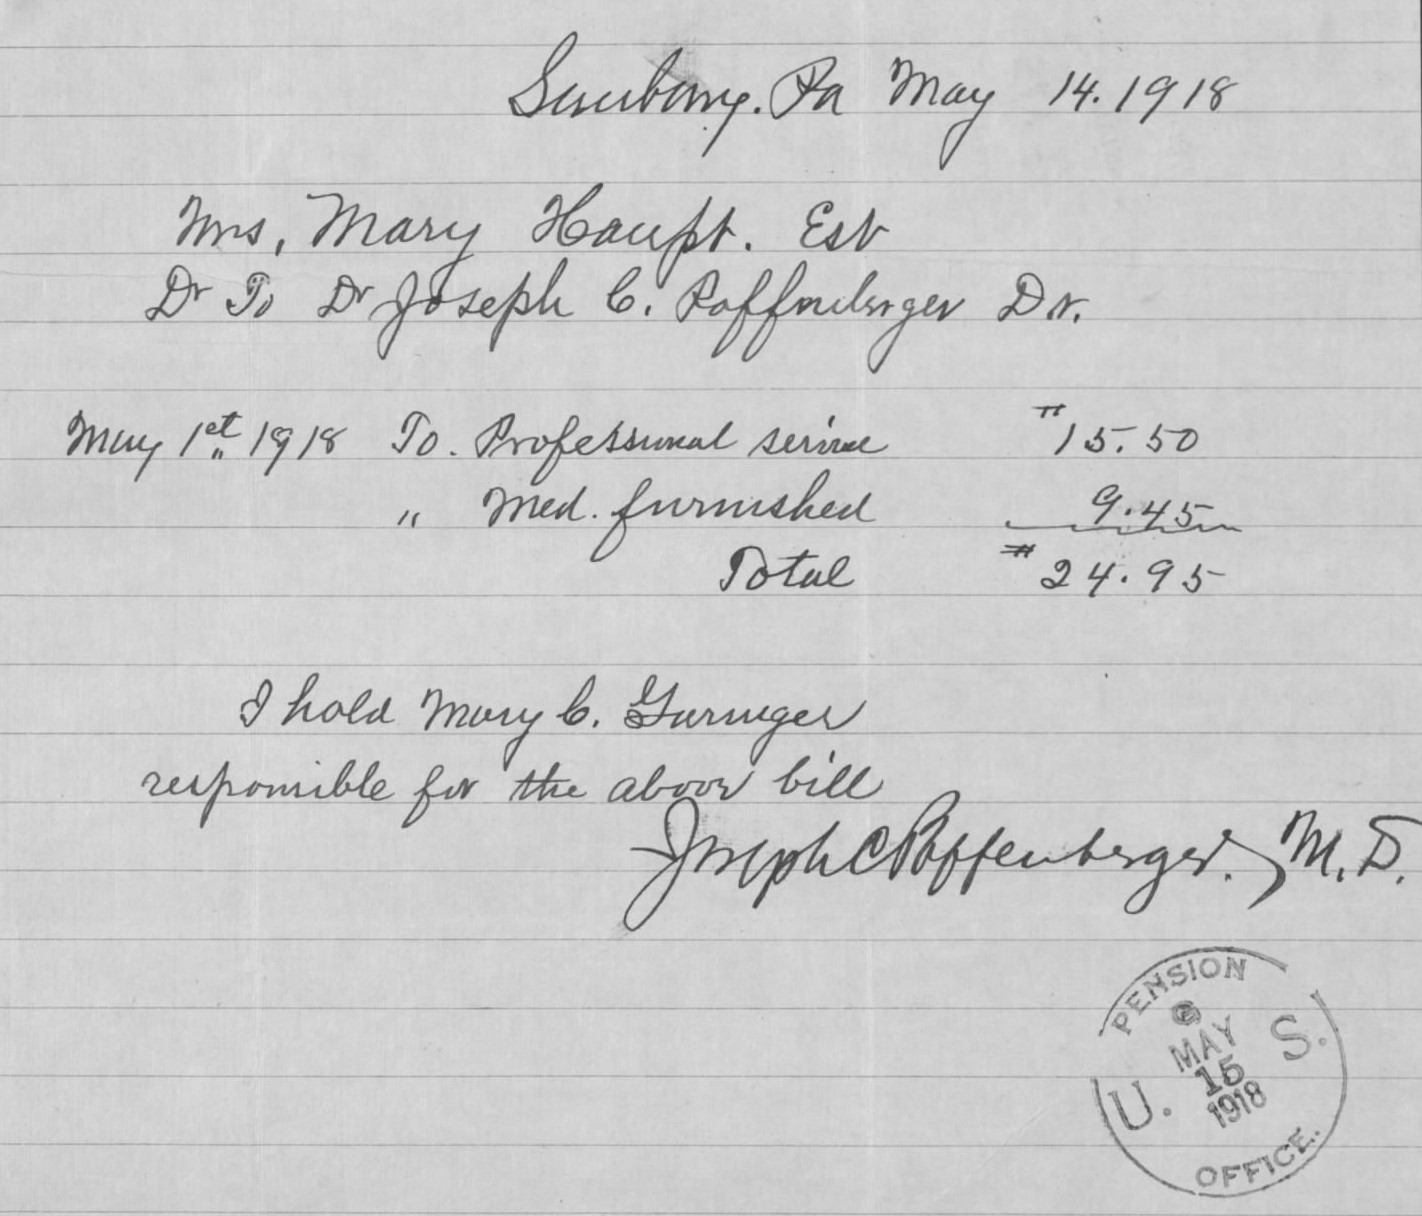 Sunbury. Pa May 14. 1918
Mrs, Mary Haupt. Est
Dr To Dr Joseph C. Poffenberger Dr.
May 1st 1918 To. Professional service $15.50
" Med. furnished 9.45
Total $24.95
I hold Mary C. Garinger
responsible for the above bill
Joseph C Poffenberger, M.D.
PENSION
MAY
15
1918
U. S.
OFFICE.